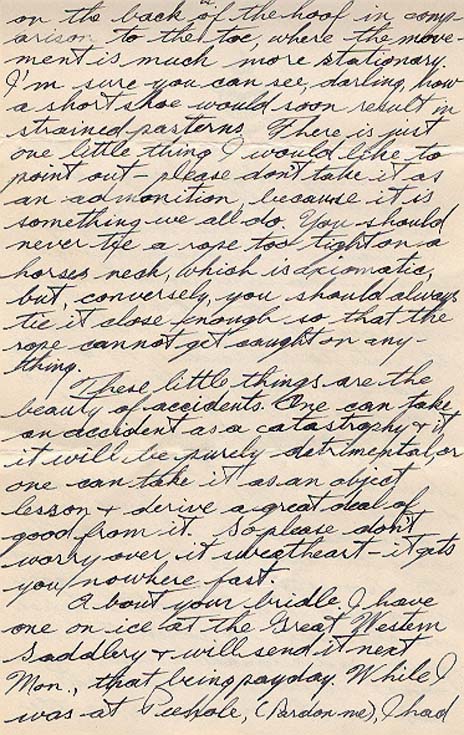 on the back of the hoof in comp-
arison to the toe, where the move-
ment is much more stationary.
I'm sure you can see, darling, how
a short shoe would soon result in
strained pasterns. There is just
one little thing I would like to
point out - please don't take it as
an admonition, because it is
something we all do. You should
never tie a rope too tight on a
horses neck, which is axiomatic,
but, conversely, you should always
tie it close enough so that the
rope cannot get caught on any-
thing.
These little things are the
beauty of accidents. One can take
an accident as a catastrophy + it
it will be purely detrimental, or
one can take it as an object
lesson + derive a great deal of
good from it. So please don't
worry over it sweetheart - it gets
you nowhere fast.
About your bridle. I have
one on ice at the Great Western
Saddlery + will send it next
Mon., that being payday. While I
was at (Pardon me), I had